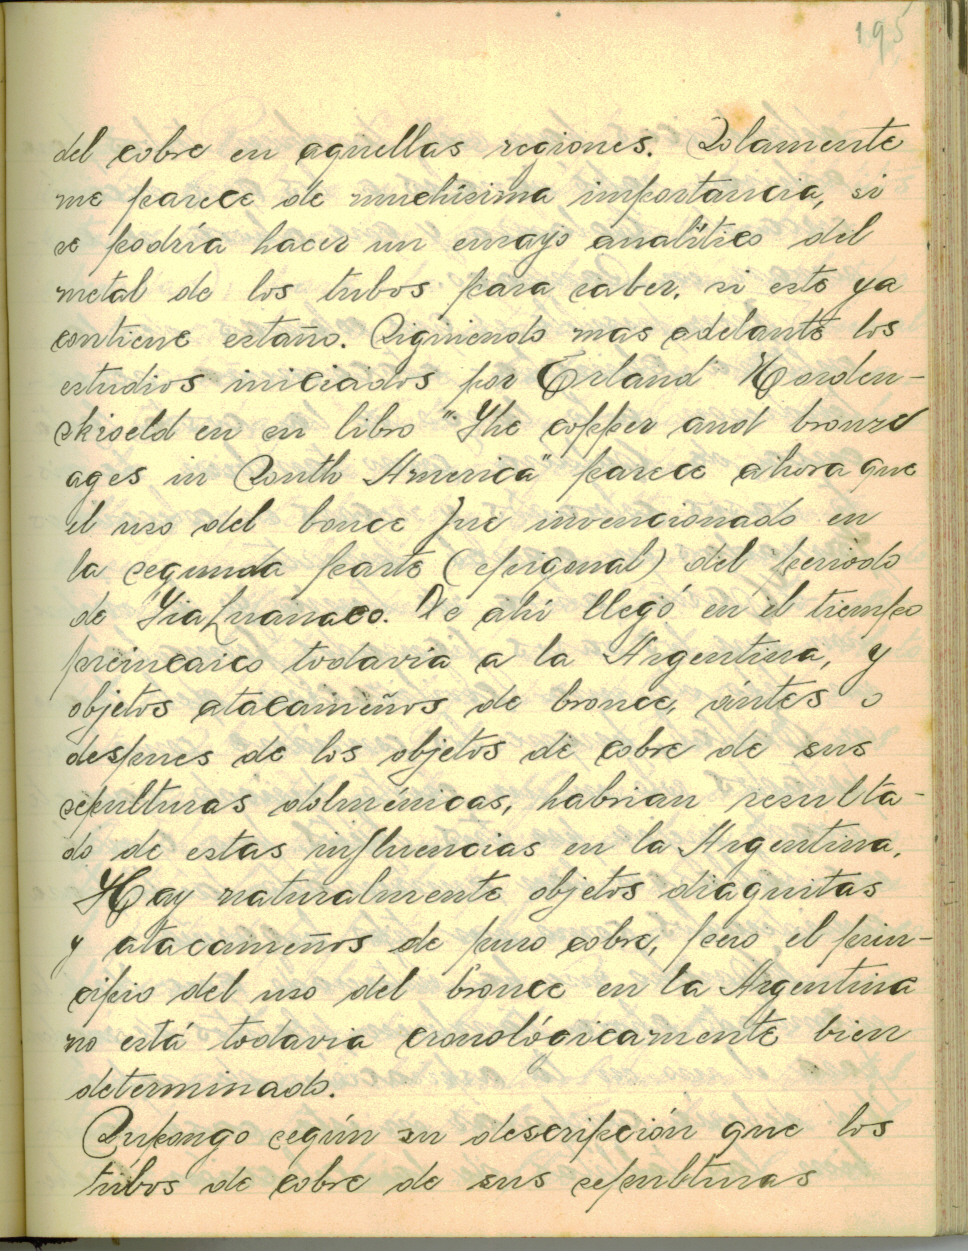 195
del cobre en aquellas regiones. Solamente
me parece de muchísima importancia, si
se podría hacer un ensayo analítico del
metal de los tubos para saber, si este ya
contiene estaño. Siguiendo mas adelante los
estudios iniciados por Erland Norden-
skioeld en su libro "The copper and bronze
ages in South America" parece ahora que
el uso del bonce fue invencionado en
la segunda parte (epigonal) del periodo
de Tiahuanaco. De ahí llegó en el tiempo
preincaico todavia a la Argentina, y
objetos atacameños de bronce, ántes o
despues de los objetos de cobre de sus
sepulturas dolménicas, habrian resulta-
do de estas influencias en la Argentina.
Hay naturalmente objetos diaguitas
y atacameños de puro cobre, pero el prin-
cipio del uso del bronce en la Argentina
no está todavia cronológicamente bien
determinado.
Supongo según su descripción que los
tubos de cobre de sus sepulturas